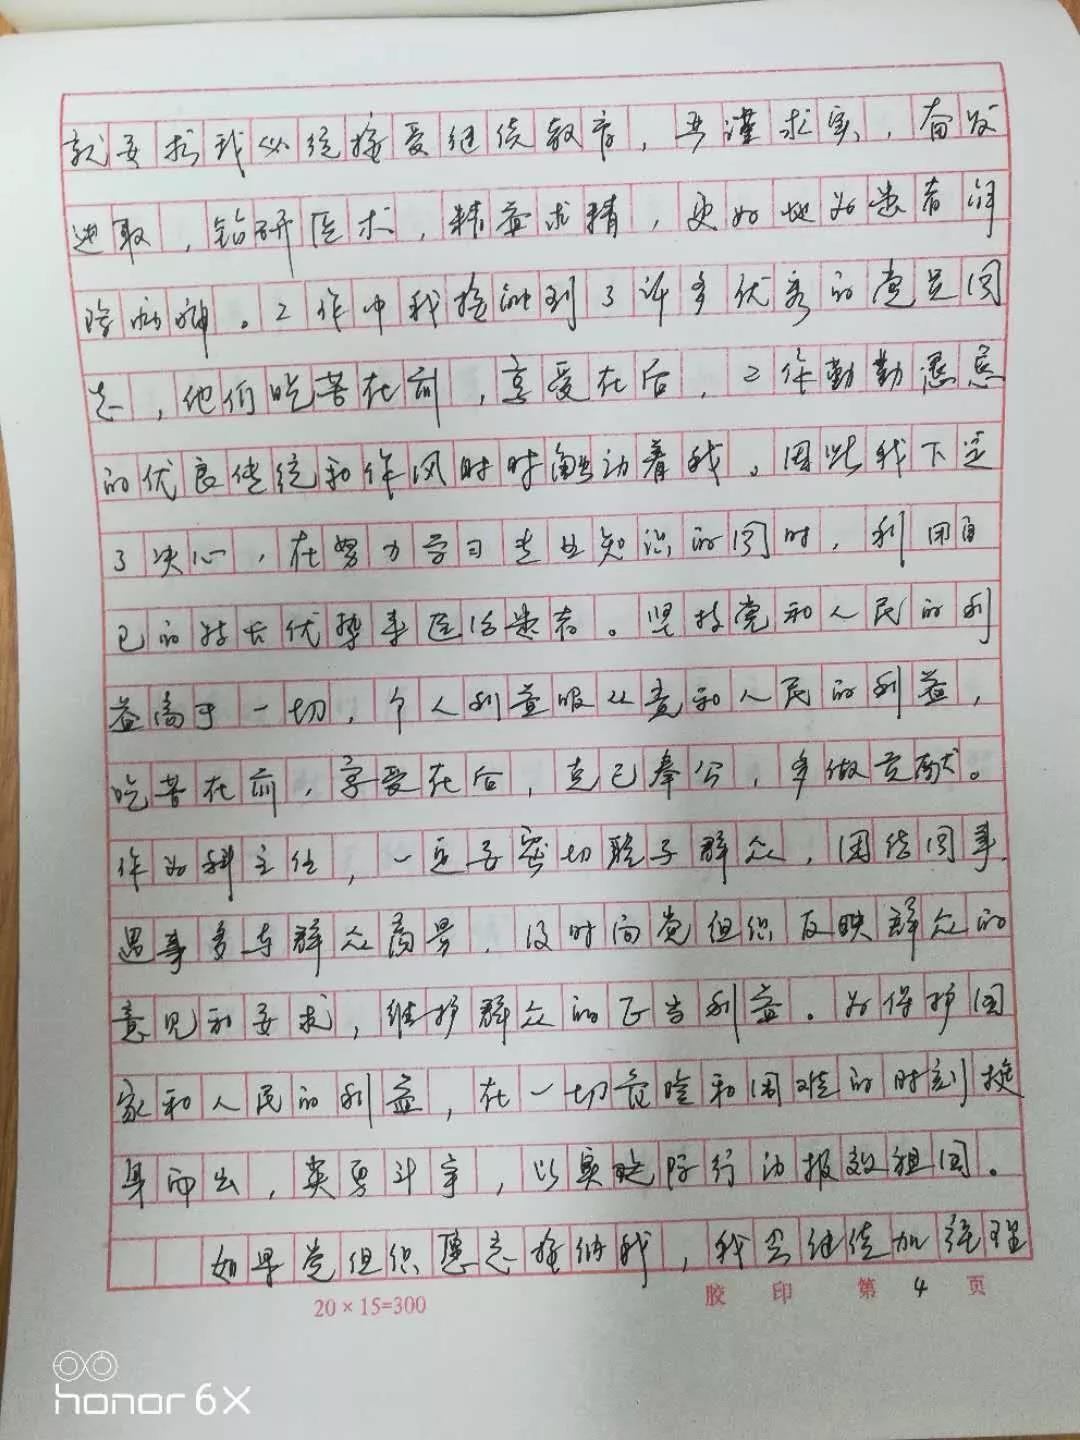 就要求我必须接受继续教育，严谨求实，奋发
进取，钻研医术，精益求精，更好地为患者解
除病痛。工作中我接触到了许多优秀的党员同
志，他们吃苦在前，享受在后，工作勤勤恳恳
的优良传统和作风时时触动着我。因此我下定
了决心，在努力学习专业知识的同时，利用自
己的特长优势来医治患者。坚持党和人民的利
益高于一切，个人利益服从党和人民的利益，
吃苦在前，享受在后，克己奉公，多做贡献。
作为科主任，一定要密切联系群众，团结同事
遇事多与群众商量，及时向党组织反映群众的
意见和要求，维护群众的正当利益。为保护国
家和人民的利益，在一切危险和困难的时刻挺
身而出，英勇斗争，以实际行动报效祖国。
如果党组织愿意接纳我，我会继续加强理
20×15=300 胶印 第4页
honor 6X